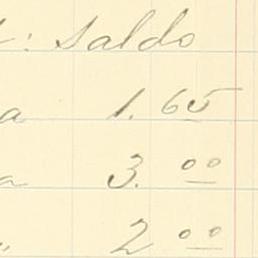 : Saldo
a 1.65
a 3.00
" 2 00